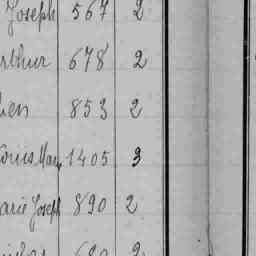 Joseph 567 2
rthur 678 2
ien 853 2
Louis Marie 1405 3
arie Joseph 890 2